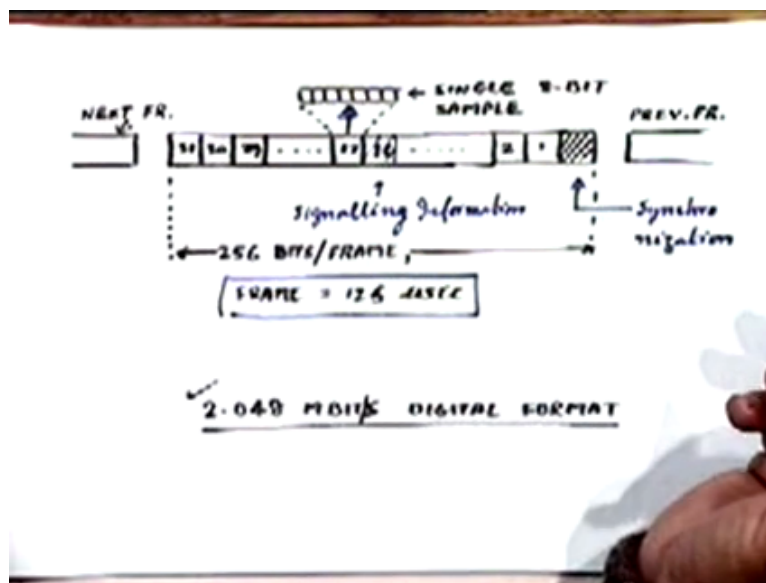 SINGLE 8-BIT
SAMPLE
NEXT FR.
PREV. FR.
31 30 29 .... 17 16 ..... 2 1
Signalling Information
Synchro
nization
256 BITS/FRAME,
FRAME = 125 µSEC
2.048 MBIT/S DIGITAL FORMAT